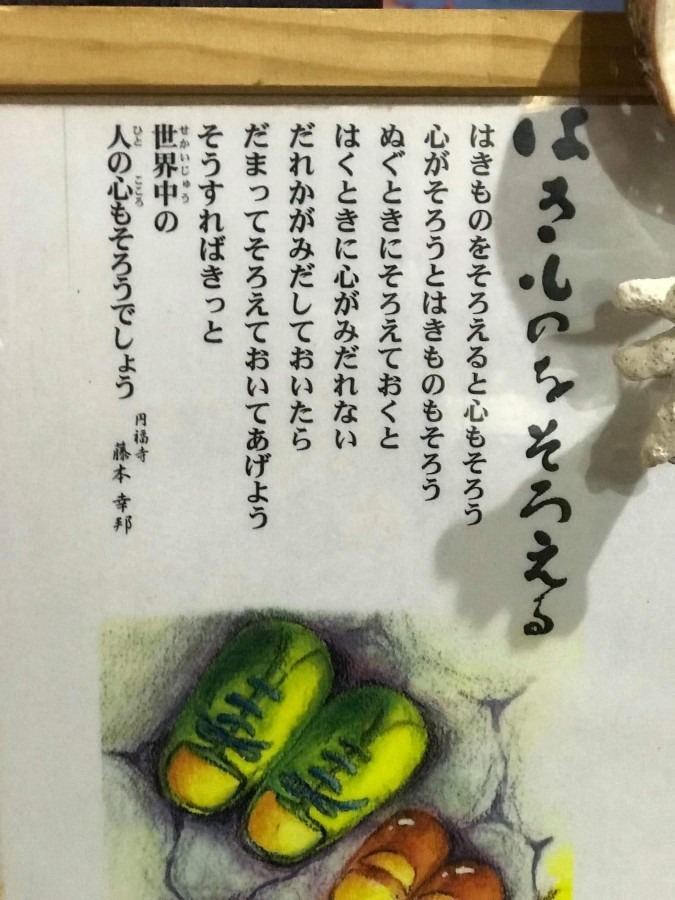 はきものをそろえる
はきものをそろえると心もそろう
心がそろうとはきものもそろう
ぬぐときにそろえておくと
はくときに心がみだれない
だれかがみだしておいたら
だまってそろえておいてあげよう
そうすればきっと
世界中の
せかいじゅう
人の心もそろうでしょう
ひと こころ
円福寺
藤本幸邦